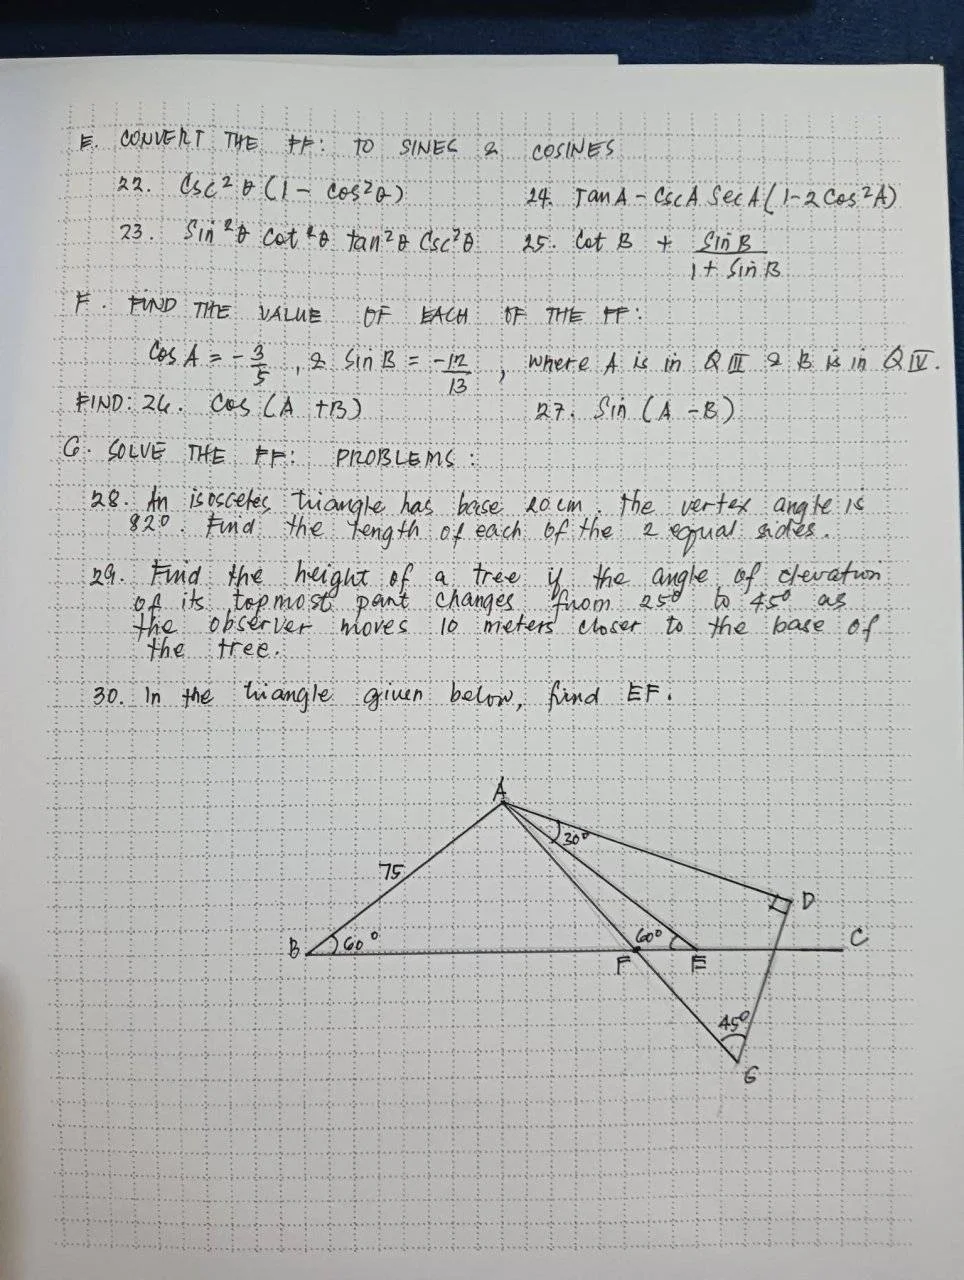 E. CONVERT THE FF: TO SINES & COSINES
22. Csc²θ (1 - cos²θ) 24. Tan A - Csc A Sec A (1-2 Cos²A)
23. Sin²θ Cot²θ tan²θ Csc²θ 25. Cot B + Sin B / 1 + Sin B
F. FIND THE VALUE OF EACH OF THE FF:
Cos A = -3/5, & Sin B = -12/13, where A is in Q III & B is in Q IV.
FIND: 26. Cos (A + B) 27. Sin (A - B)
G. SOLVE THE FF: PROBLEMS:
28. An isosceles triangle has base 20 cm. The vertex angle is
82°. Find the length of each of the 2 equal sides.
29. Find the height of a tree if the angle of elevation
of its topmost part changes from 25° to 45° as
the observer moves 10 meters closer to the base of
the tree.
30. In the triangle given below, find EF.
A
30°
75
D
B 60° 60° C
F E
45°
G